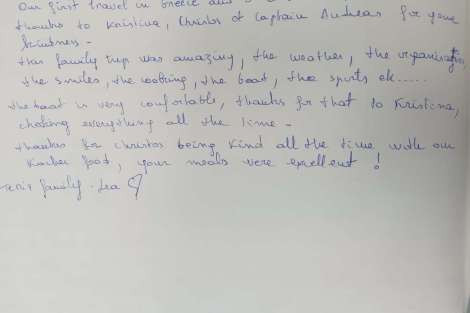 Our first travel in Greece and
thanks to Kristina, Christos et Captain Andreas for your
kindness -
this family trip was amazing, the weather, the organisation
the smiles, the cooking, the boat, the spots ek.....
the boat is very comfortable, thanks for that to Kristina,
choking everything all the time -
thanks for Christos being kind all the time with our
Kosher food, your meals were excellent !
family - Lea ♡